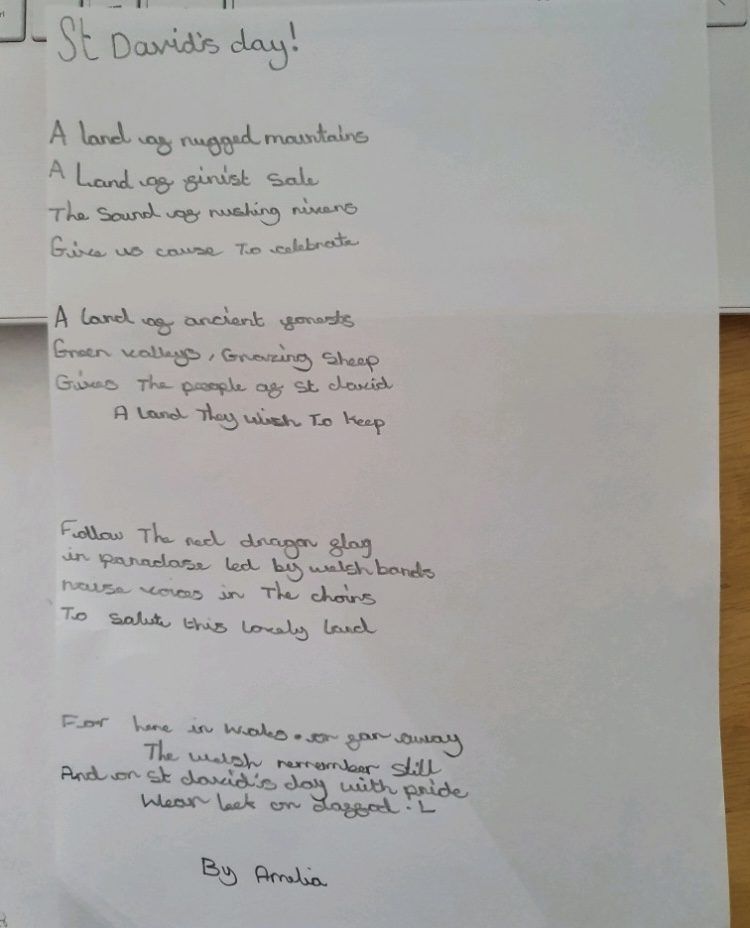 St David's day!
A land of rugged mountains
A Land of finist Sale
The Sound of rushing rivers
Gives us cause To celebrate
A land of ancient forests
Green valleys, Grazing Sheep
Gives The people of St david
A Land They wish To keep
Follow The red dragon flag
in paradase led by welsh bands
raise voices in The choirs
To salute this Lovely land
For here in wales or far away
The welsh remember still
And on St david's day with pride
Wear leek or daffod.L
By Amelia